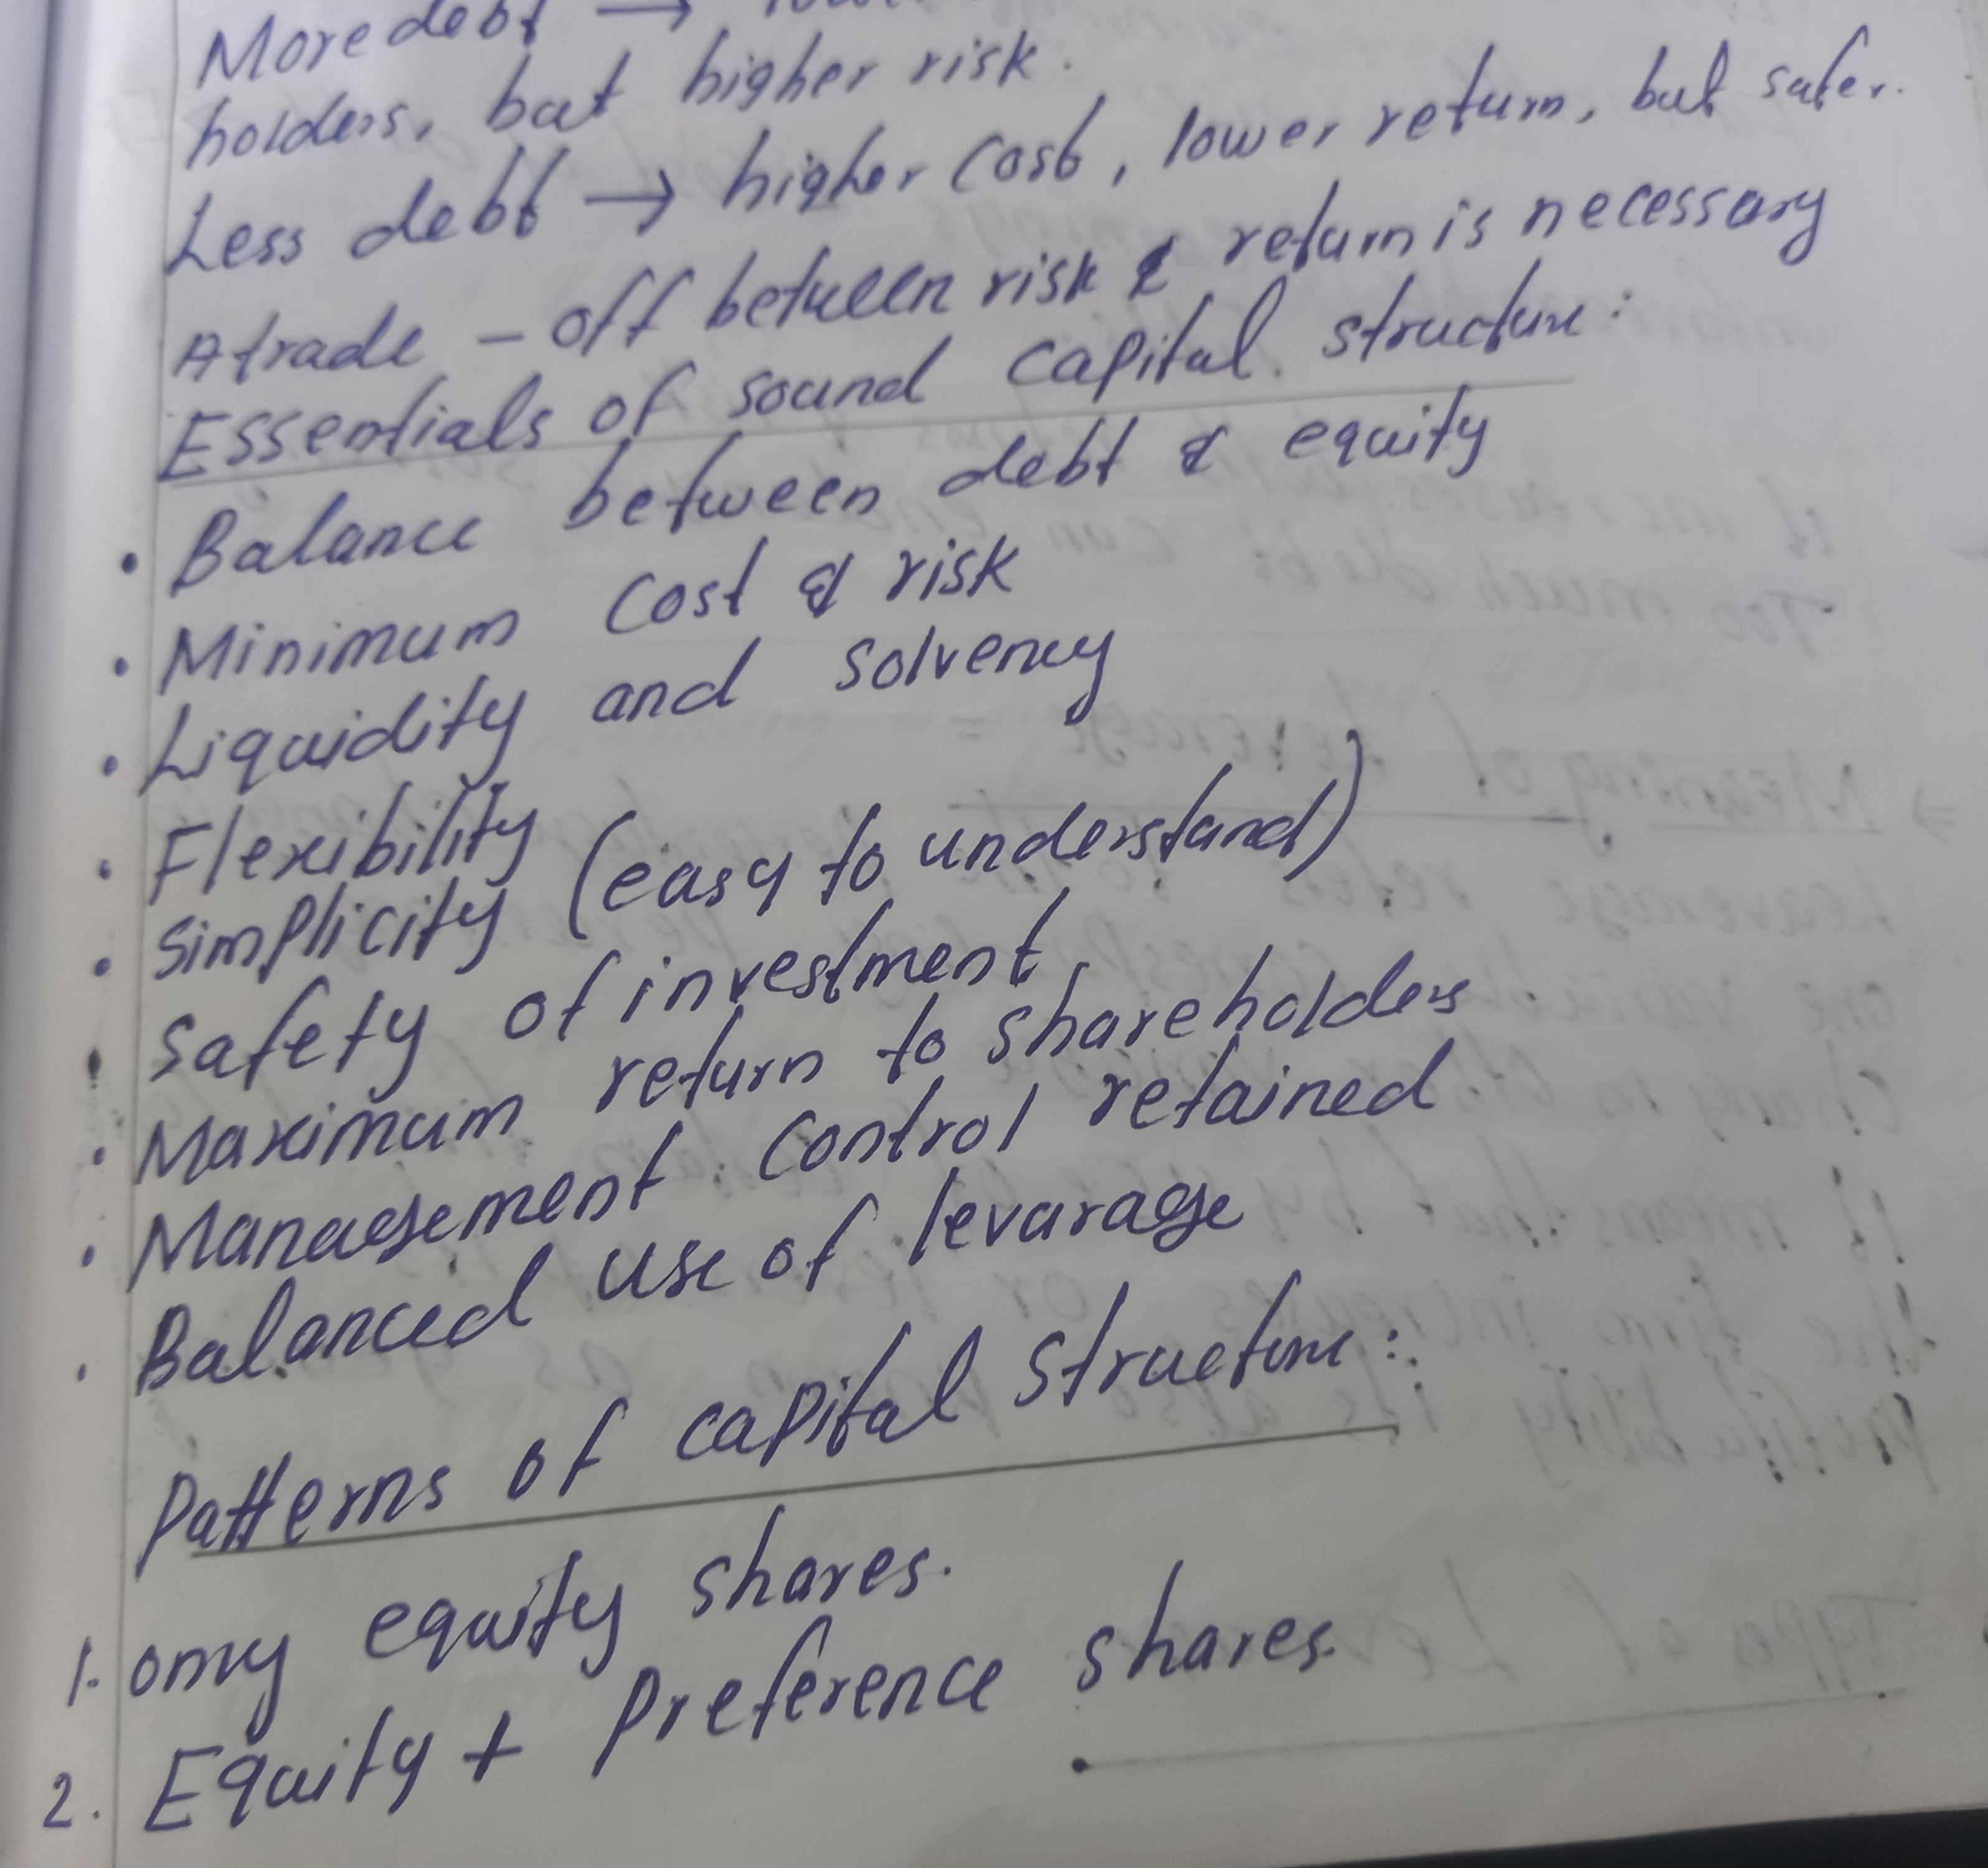 More debt →
holders, but higher risk.
Less debt → higher cost, lower return, but safer.
A trade - off between risk & return is necessary
Essentials of sound capital structure:
• Balance between debt & equity
• Minimum cost & risk
• Liquidity and solvency
• Flexibility
• Simplicity (easy to understand)
• Safety of investment
• Maximum return to shareholders
• Management control retained
• Balanced use of levarage
Patterns of capital structure:
1. only equity shares.
2. Equity + Preference shares.